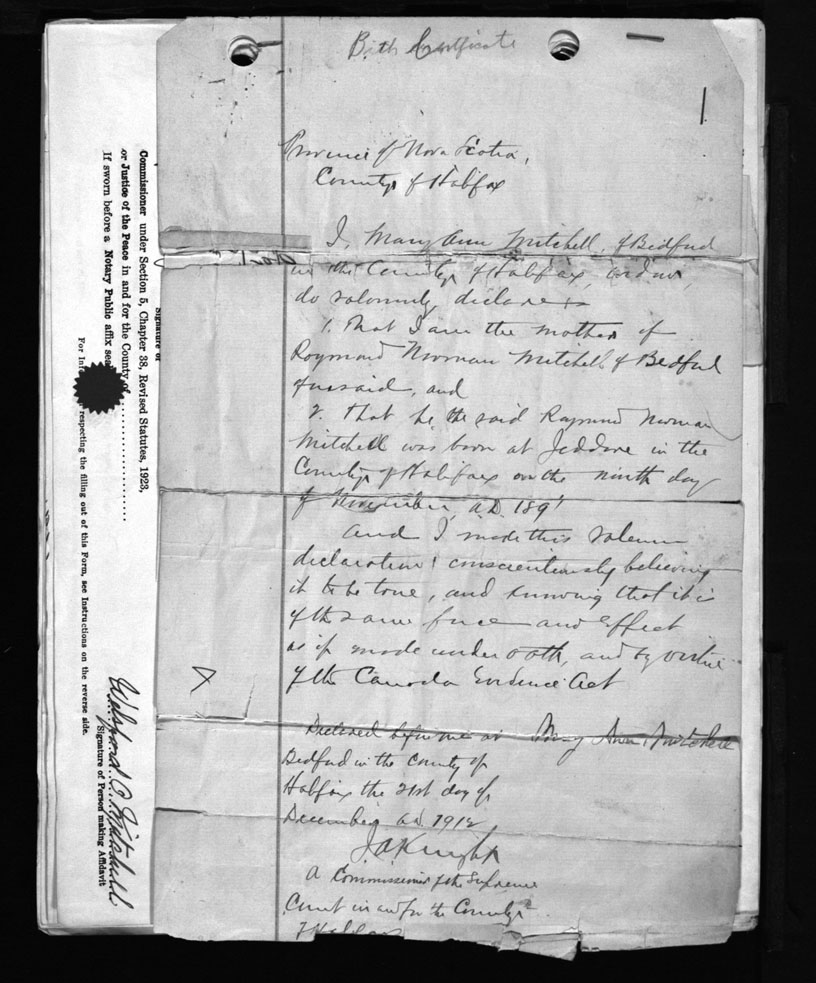 Birth Certificate
Province of Nova Scotia,
County of Halifax
I, Mary Ann Mitchell, of Bedford
in the County of Halifax,
do solemnly declare
1. That I am the mother of
Raymond Norman Mitchell of Bedford
aforesaid, and
2. That he the said Raymond Norman
Mitchell was born at Jeddore in the
County of Halifax on the ninth day
of November, A.D. 189
And I make this solemn
declaration conscientiously believing
it to be true, and knowing that it is
of the same force and effect
as if made under oath, and by virtue
of the Canada Evidence Act
Declared before me at
Bedford in the County of
Halifax the 21st day of
December A.D. 1912
Mary Ann Mitchell
J.A Knight
A Commissioner of the Supreme
Court in and for the County
of Halifax
Signature of
Commissioner under Section 5, Chapter 38, Revised Statutes, 1923,
or Justice of the Peace in and for the County of
If sworn before a Notary Public affix seal
For Inf respecting the filling out of this Form, see Instructions on the reverse side.
Mitchell
Signature of Person making Affidavit